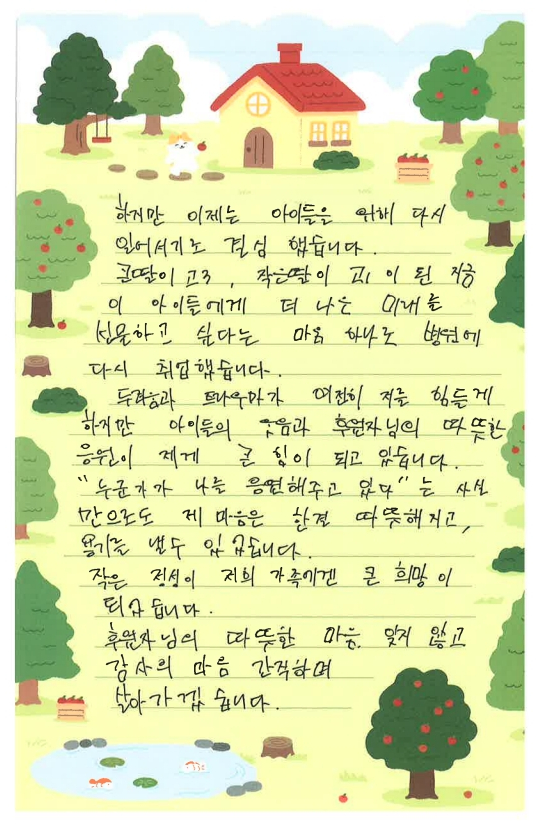 하지만 이제는 아이들을 위해 다시
일어서기로 결심 했습니다.
큰딸이 고3, 작은딸이 고1 이 된 지금
이 아이들에게 더 나은 미래를
선물하고 싶다는 마음 하나로 병원에
다시 취업했습니다.
두려움과 트라우마가 여전히 저를 힘들게
하지만 아이들의 웃음과 후원자님의 따뜻한
응원이 제게 큰 힘이 되고 있습니다.
"누군가가 나를 응원해주고 있다"는 사실
만으로도 제 마음은 한결 따뜻해지고,
용기를 낼수 있었습니다.
작은 정성이 저희 가족에겐 큰 희망이
되었습니다.
후원자님의 따뜻한 마음 잊지 않고
감사의 마음 간직하며
살아가겠습니다.